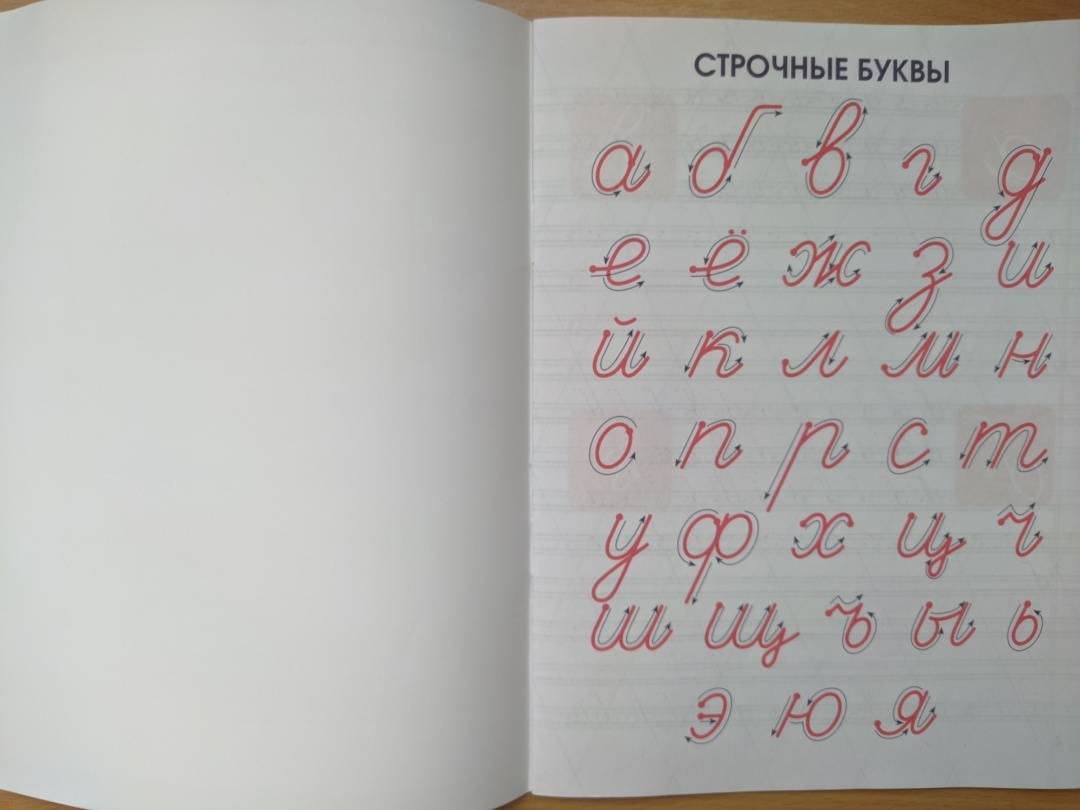 СТРОЧНЫЕ БУКВЫ
а б в г д
е ё ж з и
й к л м н
о п р с т
у ф х ц ч
ш щ ъ ы ь
э ю я